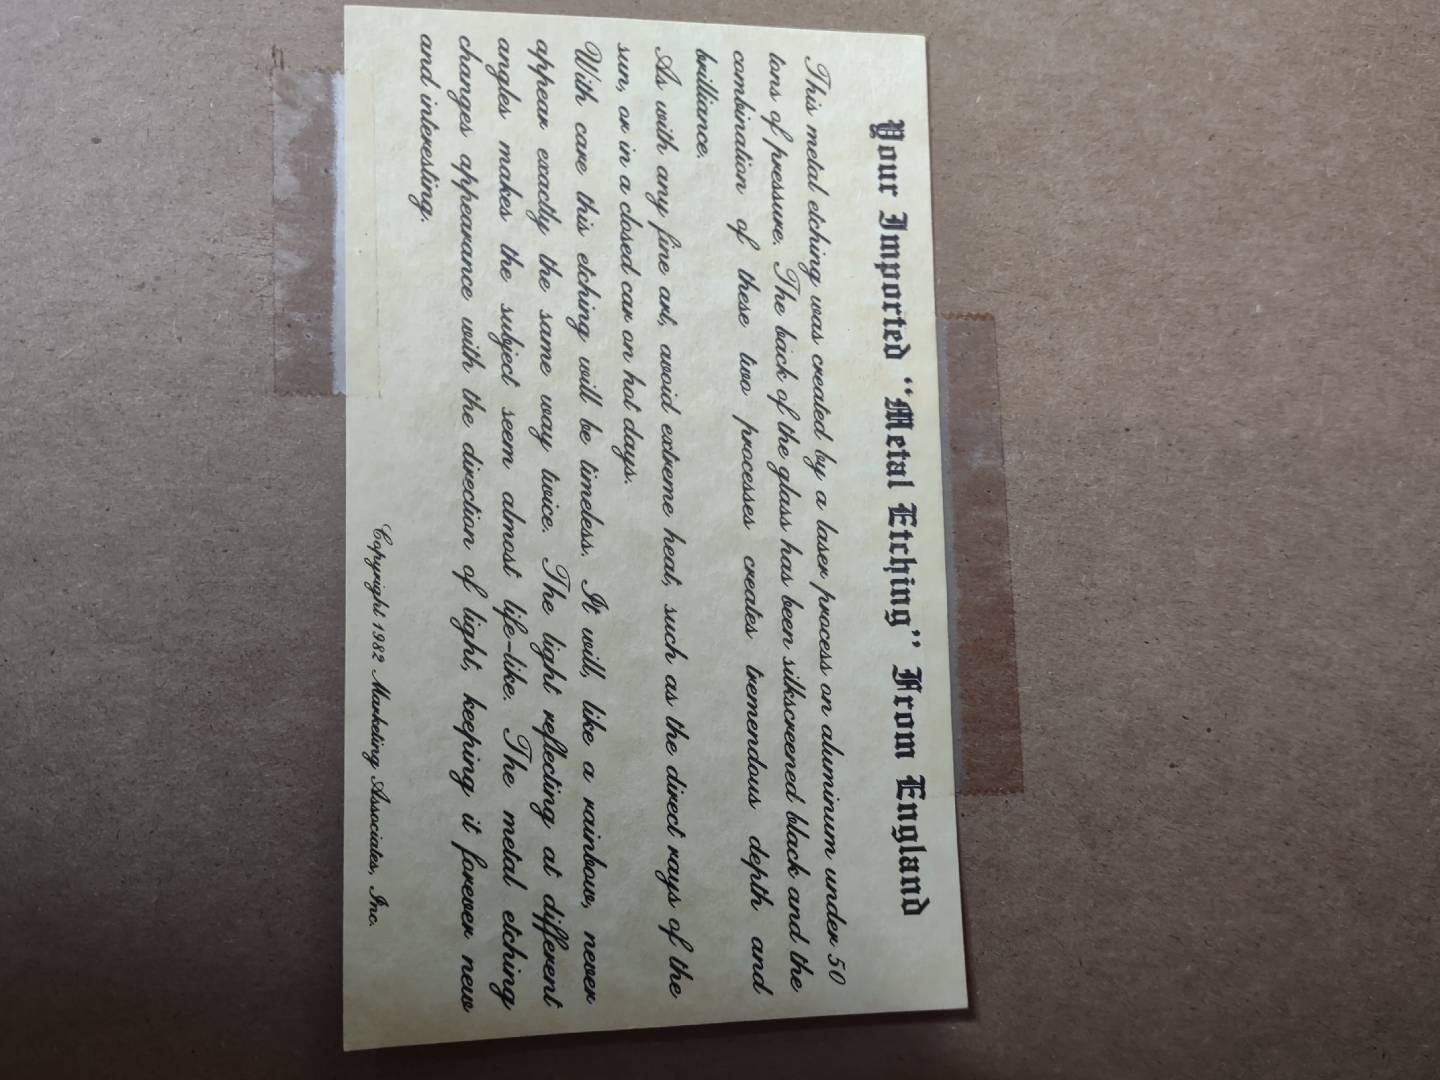 Your Imported "Metal Etching" From England
This metal etching was created by a laser process on aluminum under 50
tons of pressure. The back of the glass has been silkscreened black and the
combination of these two processes creates tremendous depth and
brilliance.
As with any fine art, avoid extreme heat, such as the direct rays of the
sun, or in a closed car on hot days.
With care this etching will be timeless. It will, like a rainbow, never
appear exactly the same way twice. The light reflecting at different
angles makes the subject seem almost life-like. The metal etching
changes appearance with the direction of light, keeping it forever new
and interesting.
Copyright 1982 Marketing Associates, Inc.